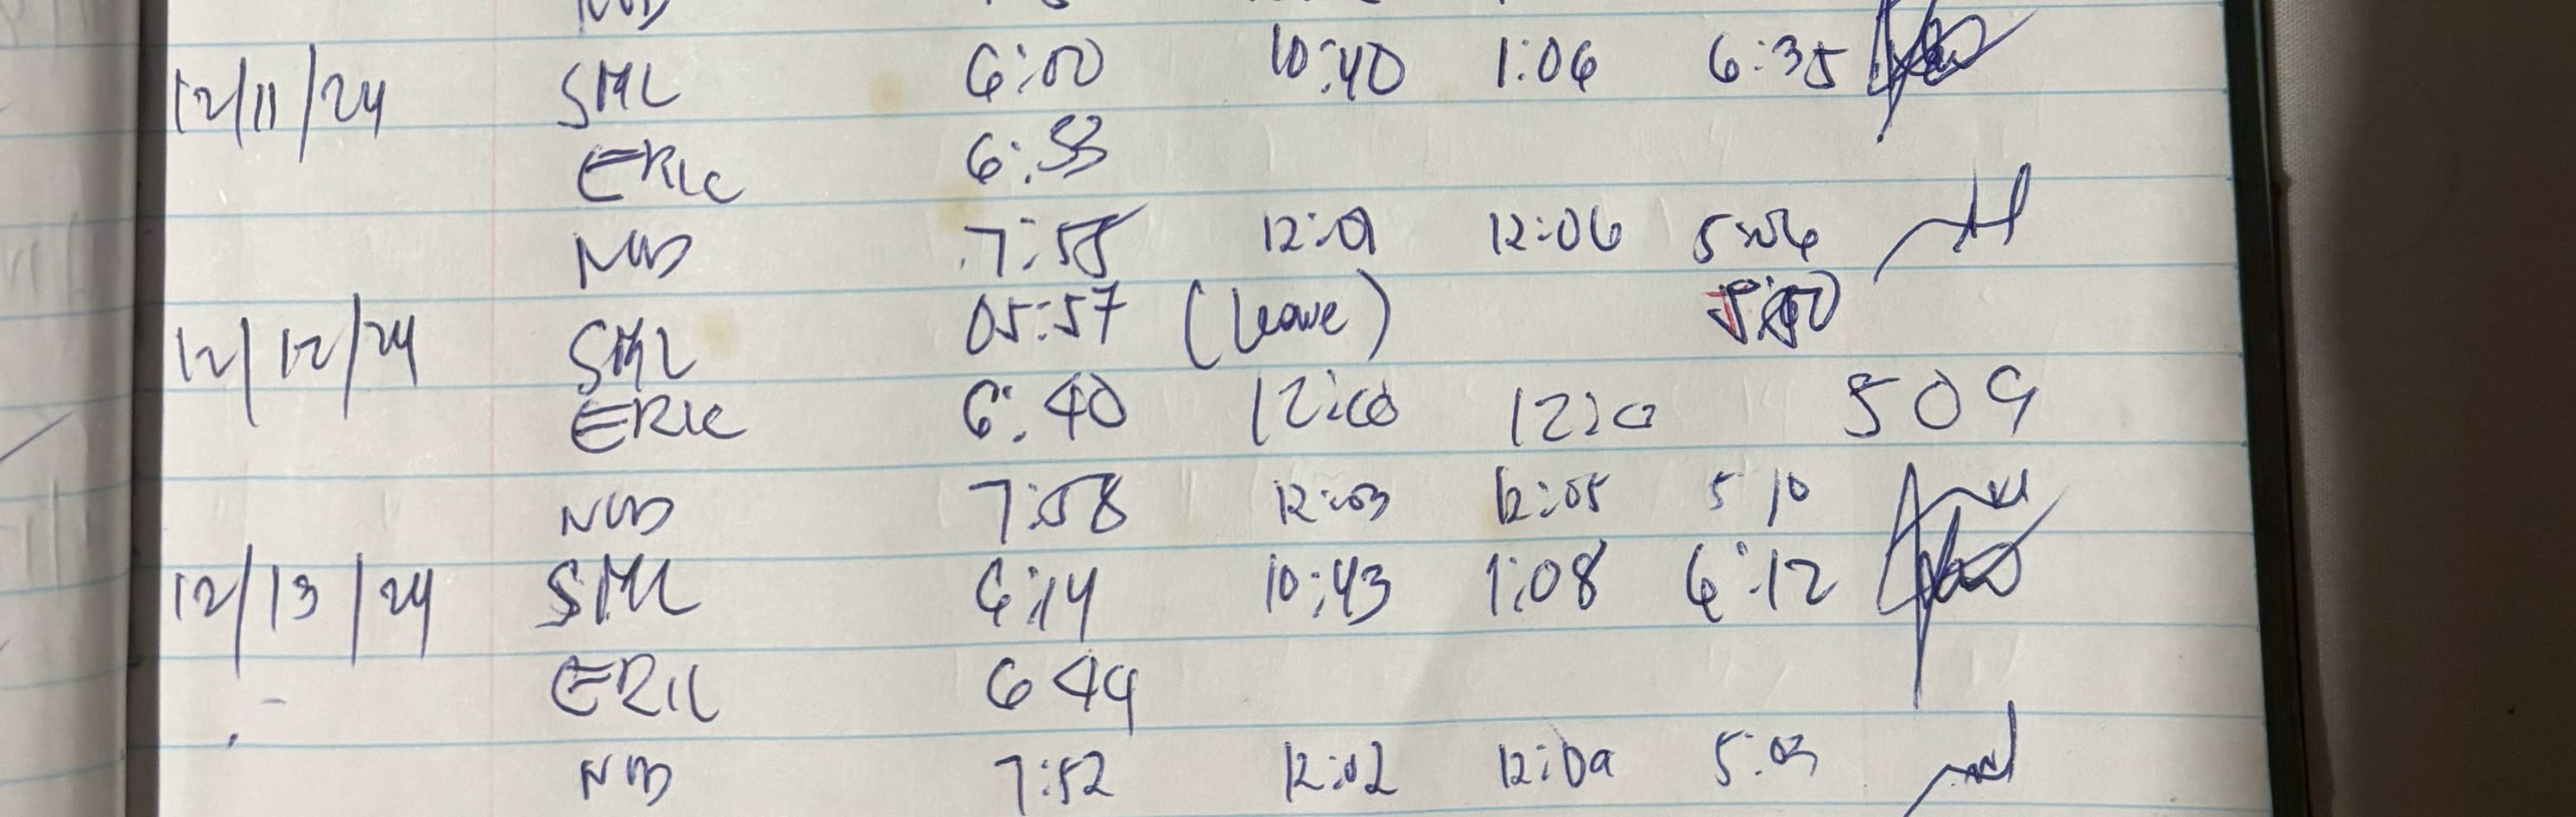 12/11/24 SML 6:00 10:40 1:06 6:35
ERIC 6:53
NWB 7:58 12:01 12:06 5:06
12/12/24 SML 05:57 (leave)
ERIC 6:40 12:00 1220 509
NWB 7:58 12:03 12:05 5 10
12/13/24 SML 6:14 10:43 1:08 6:12
ERIC 6 49
NWB 7:52 12:02 12:09 5:03